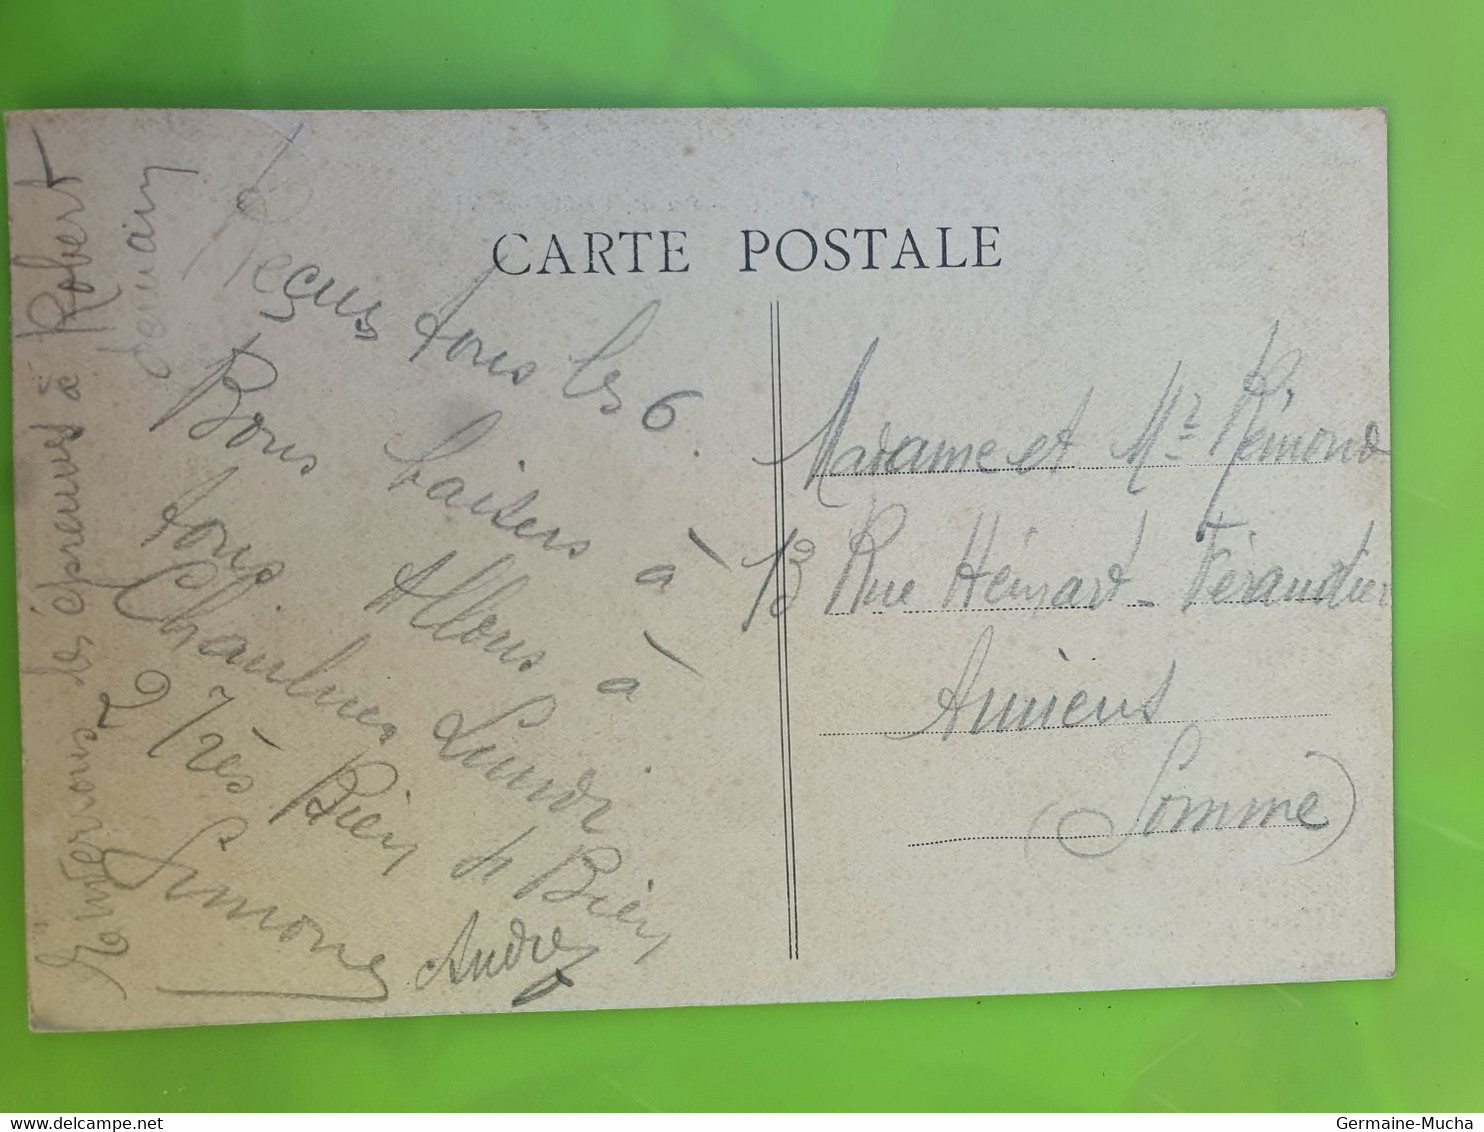 CARTE POSTALE
Reçus tous les 6.
Bons baisers à
tous Allons à
Chaulnes Lundi
Très Bien et Bien
Simone André
les épreuves à Robert
demain
Madame et Mr Rémond
13 Rue Hémart-
Amiens
(Somme)
Germaine-Mucha